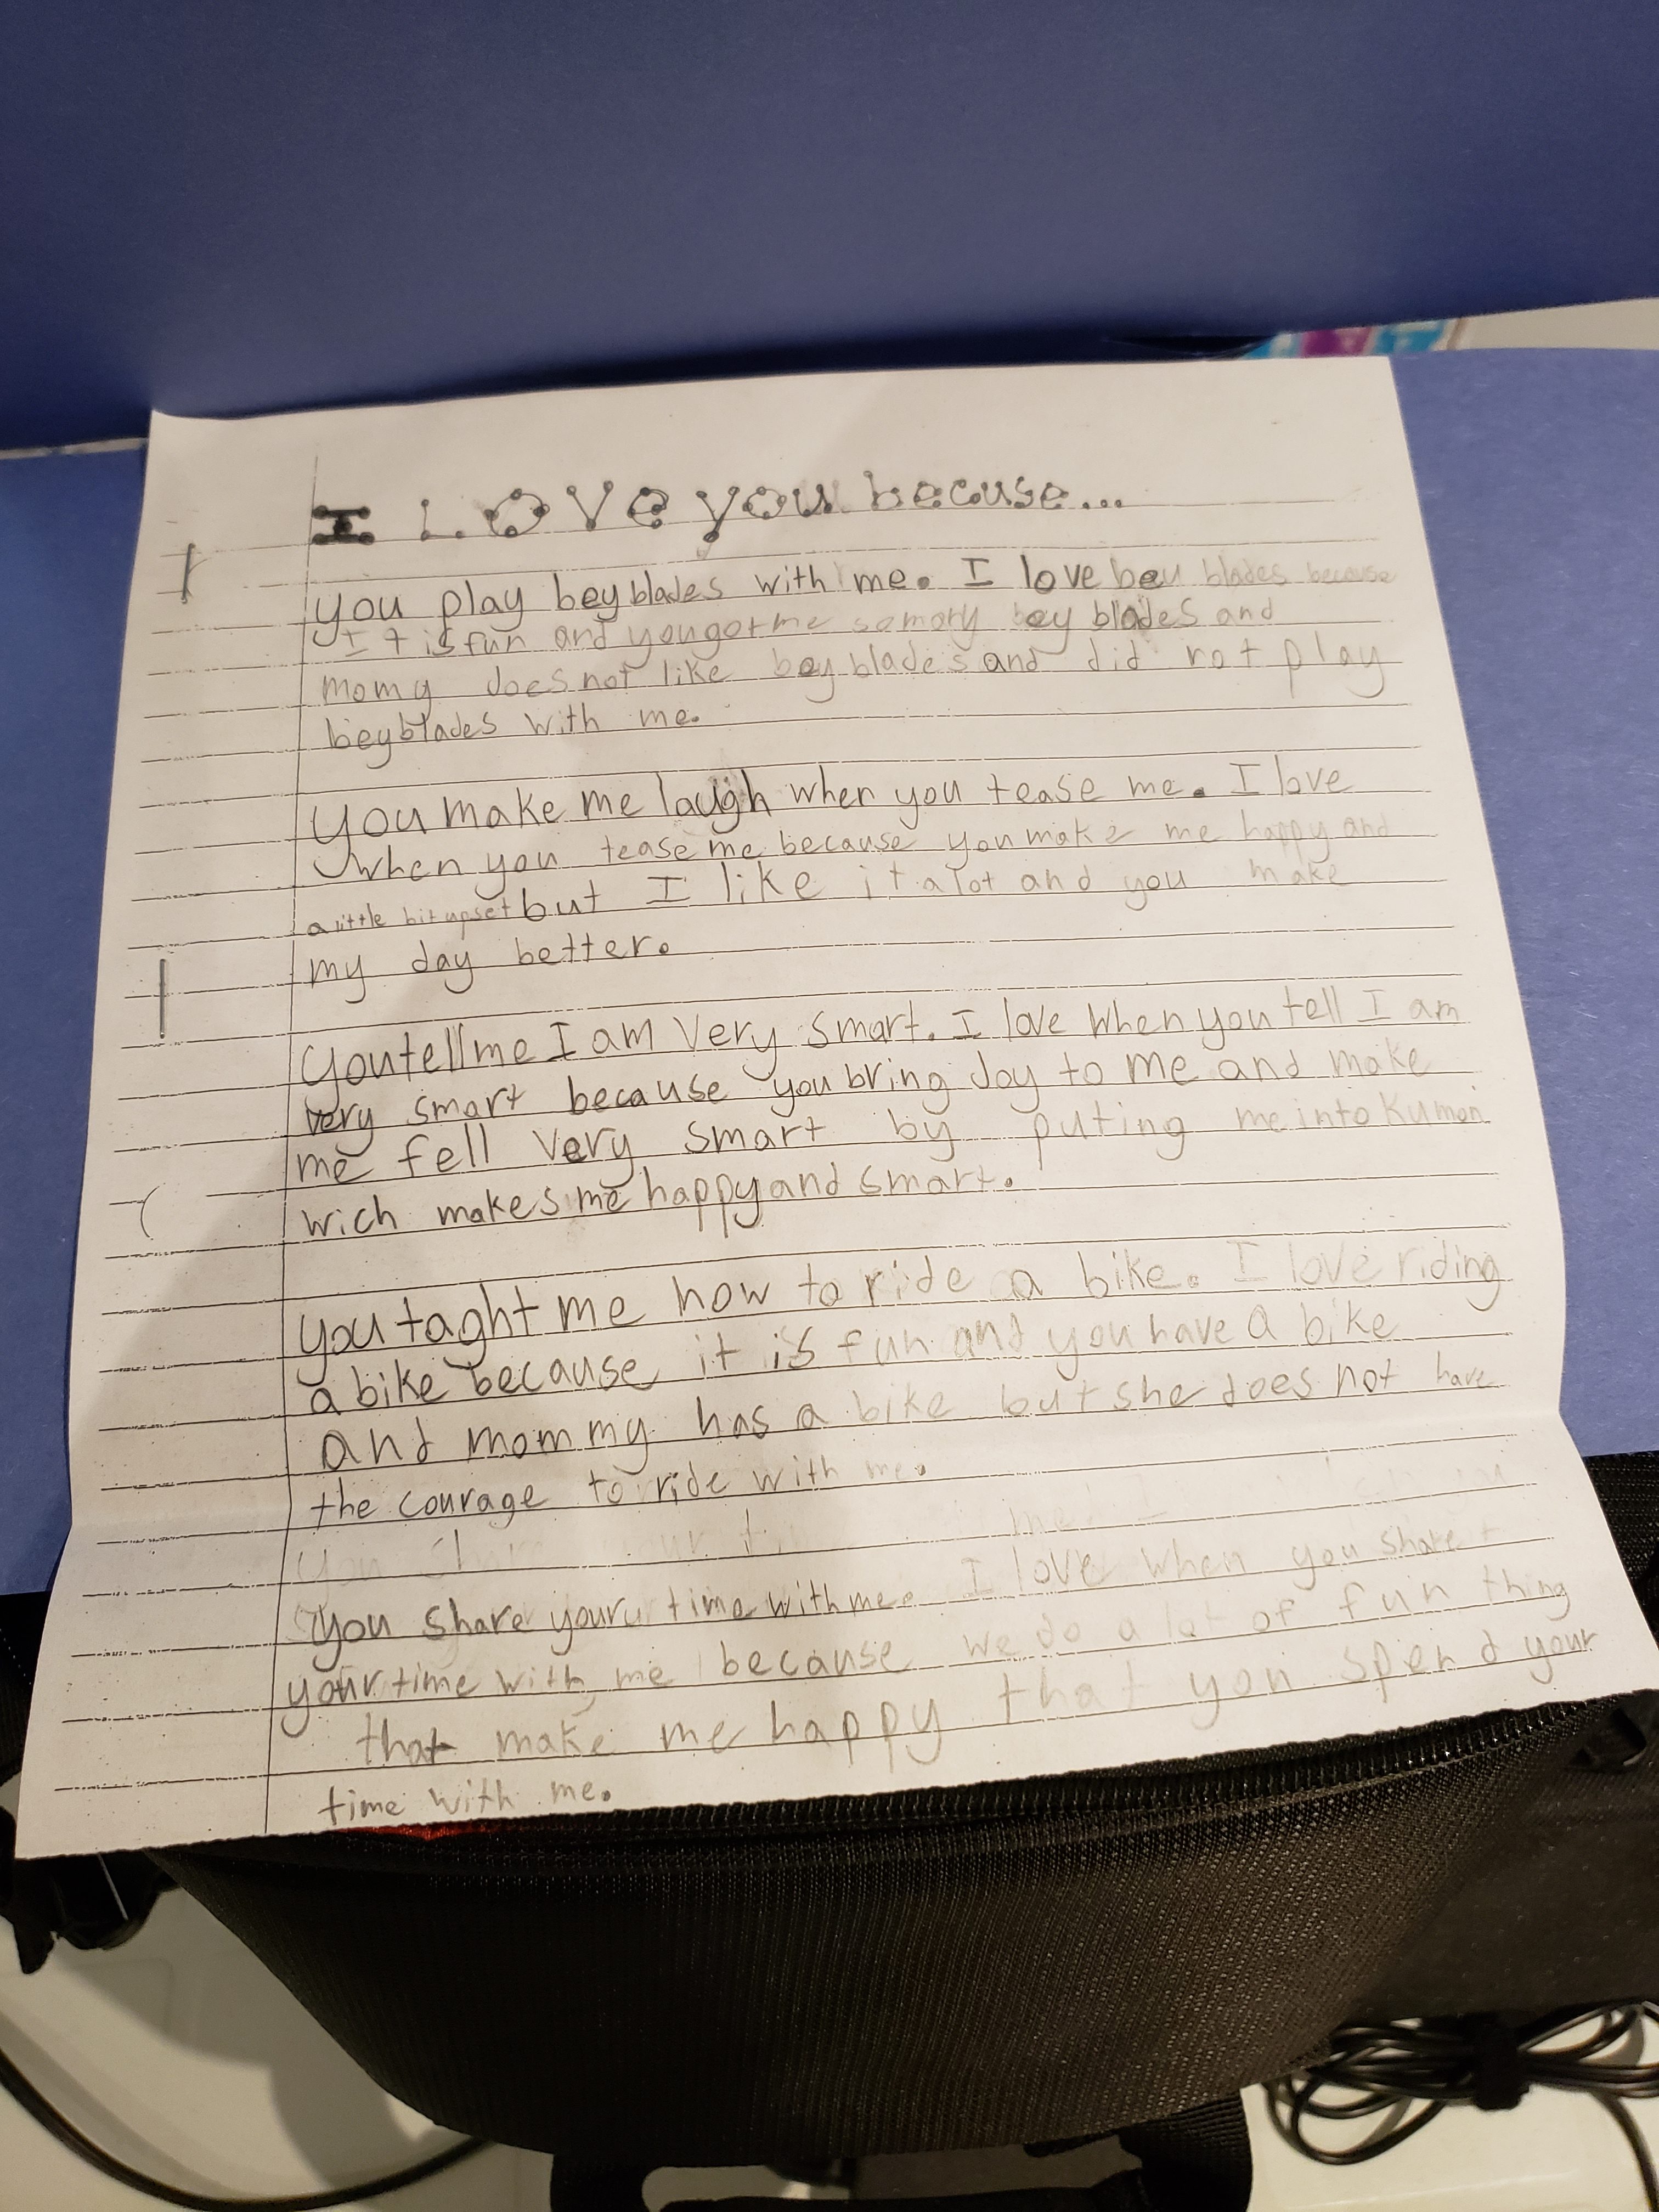 I LOVe you becuse...
you play beyblades with me. I love bey blades because
It is fun and you got me so many bey blades and
momy does not like bey blades and did not play
beyblades with me.
you make me laugh when you tease me. I love
when you tease me because you make me happy and
a little bit upset but I like it a lot and you make
my day better.
you tell me I am very smart. I love when you tell I am
very smart because you bring Joy to me and make
me fell very smart by puting me into Kumon
wich makes me happy and smart.
you taght me how to ride a bike. I love riding
a bike because it is fun and you have a bike
and mommy has a bike but she does not have
the courage to ride with me.
you share your time with me. I love when you share
your time with me because we do a lot of fun thing
that make me happy that you spend your
time with me.